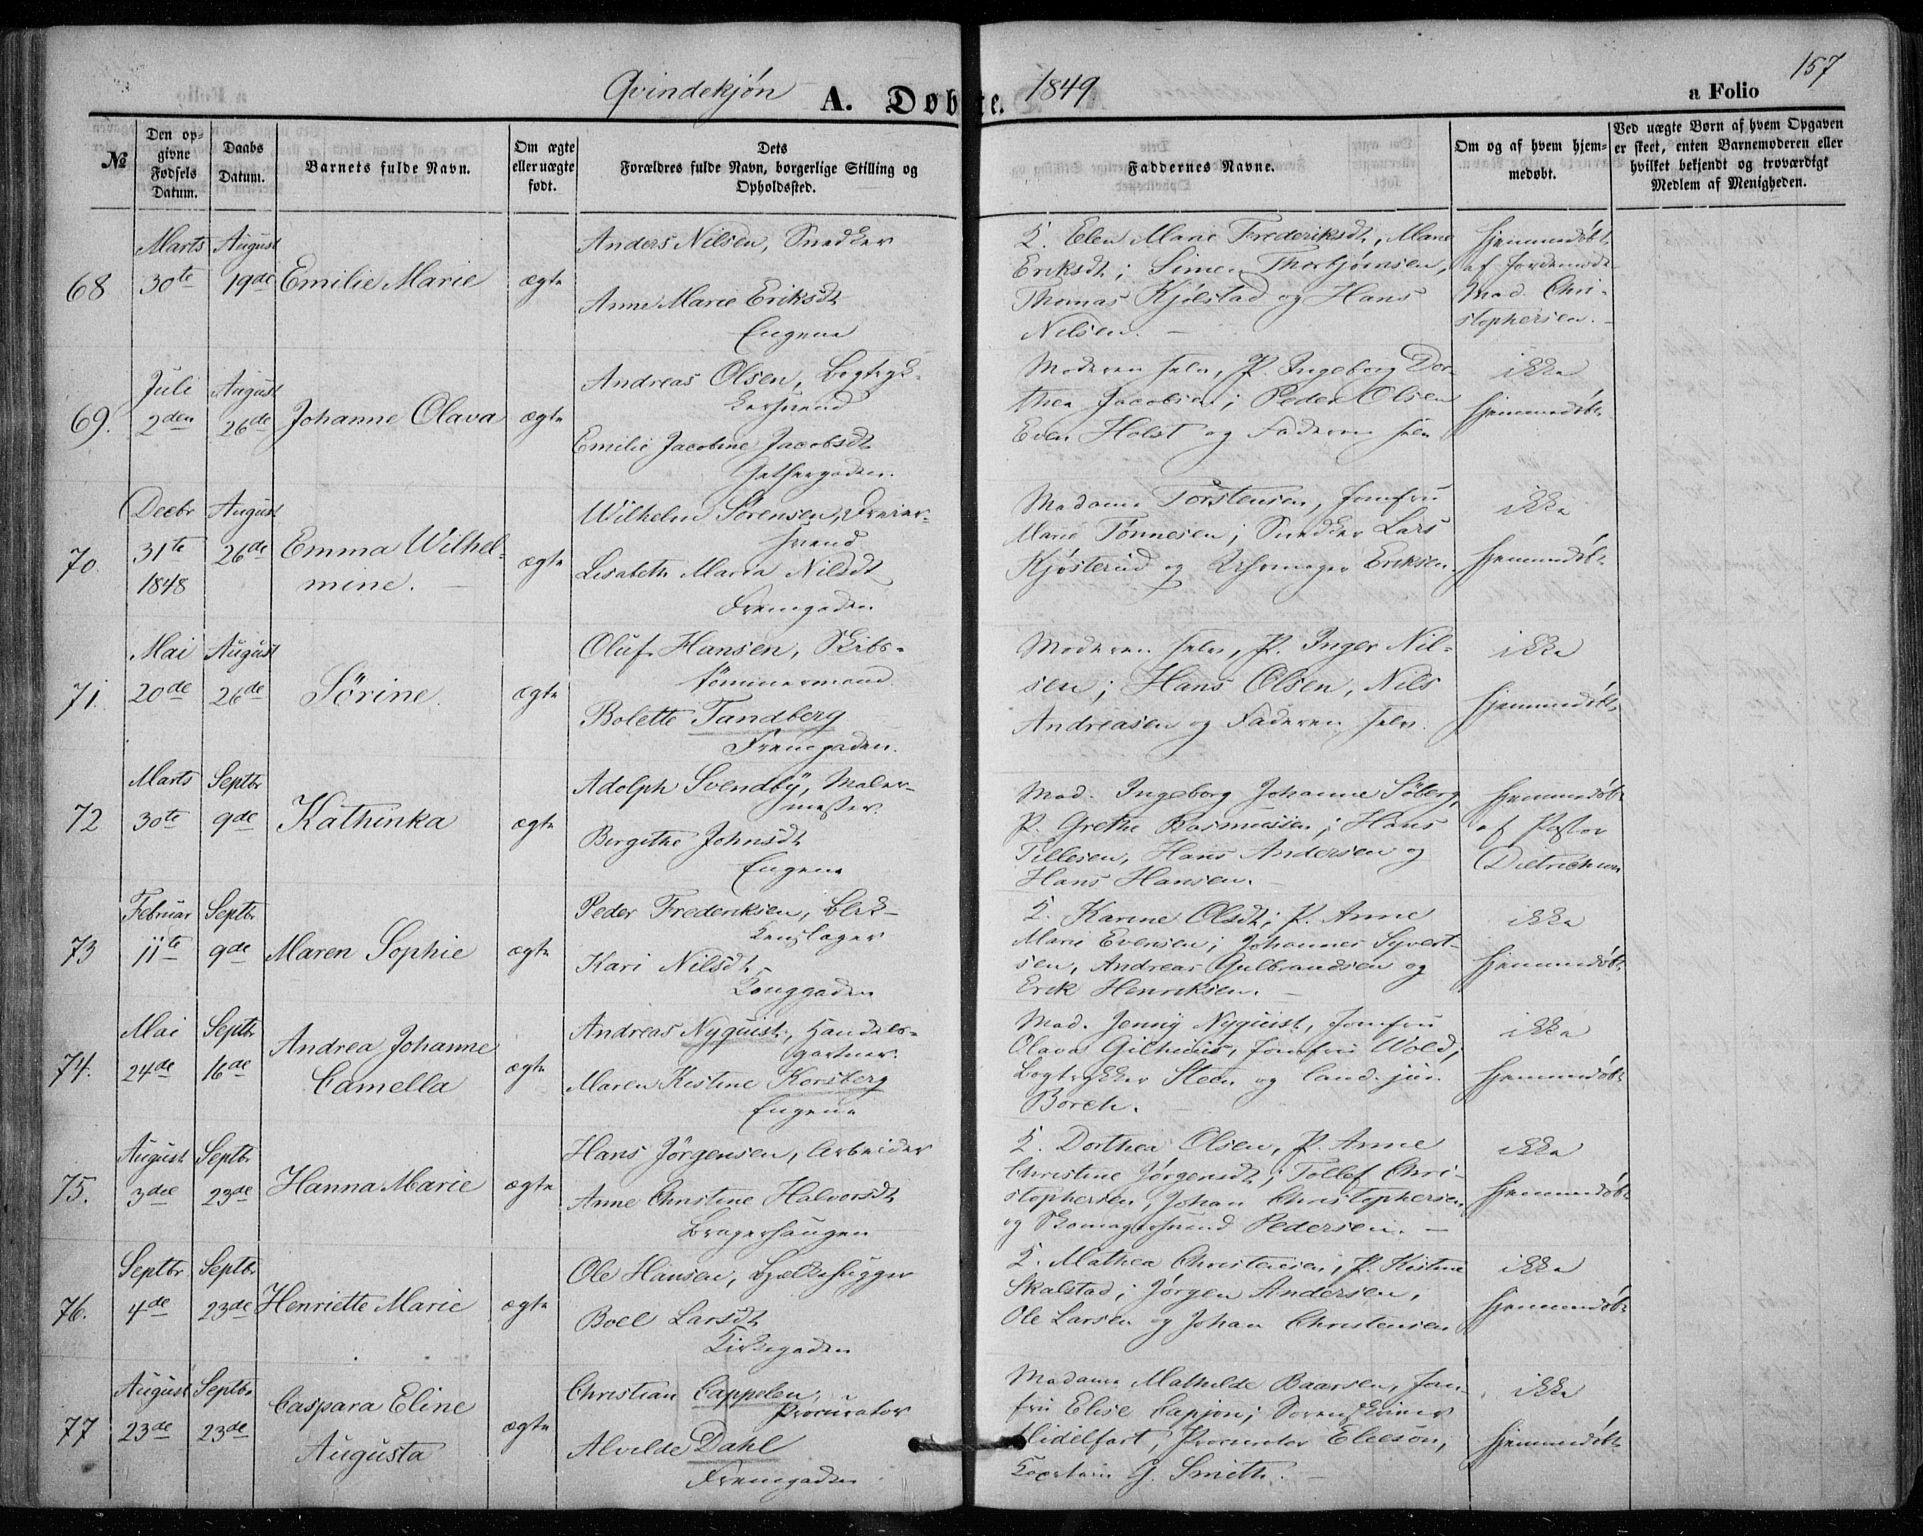 157
Qvindekjøn A. Døbte. 1849 a Folio
№
Den opgivne Fødsels Datum.
Daabs Datum.
Barnets fulde Navn.
Om ægte eller uægte født.
Dets
Forældres fulde Navn, borgerlige Stilling og
Opholdssted.
Faddernes Navne.
Om og af hvem hjemmedøbt.
Ved uægte Børn af hvem Opgaven
er skeet, enten Barnemoderen eller
hvilket bekjendt og troværdigt
Medlem af Menigheden.
68
Marts
30te
August
19de
Emilie Marie
ægte
Anders Nilsen, Snedker
Anne Marie Eriksdt
Engene
K. Elen Marie Frederiksdt, Marie
Eriksdt; Simen Thorbjørnsen,
Thomas Kjølstad og Hans
Nilsen. —
Hjemmedøbt
af Jordemoder
Mad. Chri-
stophersen. —
69.
Juli
2den
August
26de
Johanne Olava
ægte
Andreas Olsen, Bogtryk-
kersvend
Emilie Jacobine Jacobsdt
Gjethergaden.
Moderen selv, P. Ingeborg Dor-
thea Jacobsen; Peder Olsen
Even Holst og Faderen selv
ikke
hjemmedøbt
70.
Decbr
31te
1848
August
26de
Emma Wilhel-
mine. —
ægte
Wilhelm Sørensen, Dreier-
svend
Lisabeth Maria Nilsdt
Fremgaden
Madame Torstensen, Jomfru
Marie Tønnesen; Snedker Lars
Kjøsterud og Uhrmager Eriksen
ikke
hjemmedøbt
71.
Mai
20de
August
26de
Sørine.
ægte
Oluf Hansen, Skibs-
tømmermand
Bolette Tandberg
Fremgaden.
Moderen selv, P. Inger Nil-
sen; Hans Olsen, Nils
Andreasen og Faderen selv.
ikke
hjemmedøbt
72
Marts
30te
Septbr
9de
Kathinka
ægte
Adolph Svendby, Maler-
mester.
Bergithe Johnsdt
Engene
Mad. Ingeborg Johanne Søberg,
P. Grethe Rasmussen; Hans
Tillesen, Hans Andersen og
Hans Hansen. —
Hjemmedøbt
af Pastor
Dietrichson
73
Februar
11te
Septbr
9de
Maren Sophie
ægte
Peder Frederiksen, Blik-
kenslager
Kari Nilsdt
Konggaden
K. Karine Olsdt; P. Anne
Marie Evensen; Johannes Syvert-
sen, Andreas Gulbrandsen og
Erik Henriksen. —
ikke
hjemmedøbt
74.
Mai
24de
Septbr
16de
Andrea Johanne
Camella
ægte
Andreas Nyquist, Handels-
gartner.
Maren Kistine Korsberg
Engene
Mad. Jenny Nyquist, Jomfru
Olava Gilhuus, Jomfru Wold;
Bogtrykker Steen og Cand. jur.
Borch.
ikke
hjemmedøbt
75.
August
3die
Septbr
23de
Hanna Marie
ægte
Hans Jörgensen, Arbeider
Anne Christine Halvorsdt
Bragerhaugen
K. Dorthea Olsen, P. Anne
Christine Jørgensdt; Tollef Chri-
stophersen, Johan Christophersen
og Skomagersvend Pedersen. —
ikke
hjemmedøbt
76.
Septbr
4de
Septbr
23de
Henriette Marie
ægte
Ole Hansen, Bjelkehugger
Boel Larsdt
Kirkegaden
K. Mathea Christensen, P. Kistine
Skalstad; Jørgen Andersen,
Ole Larsen og Johan Christensen
ikke
hjemmedøbt
77
August
23de
Septbr
23de
Caspara Eline
Augusta
ægte
Christian Cappelen,
Procurator
Alvilde Dahl
Fremgaden
Madame Mathilde Baarsen, Jom-
fru Elise Capjon; Sorenskriver
Midelfart, Procurator Elieson,
Kaptain G. Smith. —
ikke
hjemmedøbt